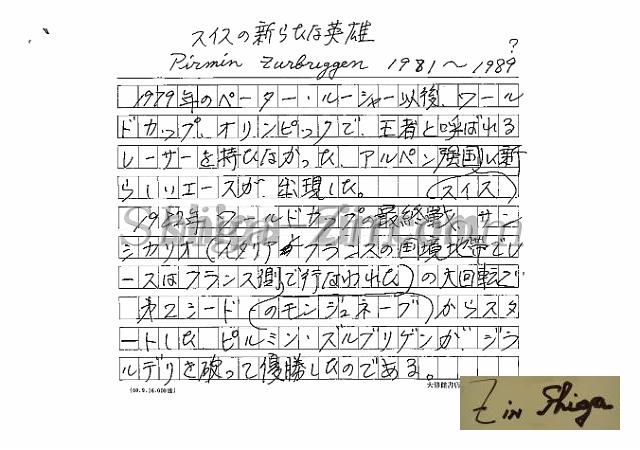 スイスの新らたな英雄
?
Pirmin Zurbriggen 1981〜1989
1979年のペーター・ルーシャー以後、ワール
ドカップ、オリンピックで、王者と呼ばれる
レーサーを持たなかった、アルペン強国に新
らしいエースが出現した。(スイス)
1982年ワールドカップの最終戦、サン
シカリオ(イタリア、フランスの国境地帯でレ
ースはフランス側で行なわれた)の大回転で
第2シード のモンジュネーブ からスタ
ートした ピルミン・ズルブリゲンが、ジラ
ルデリを破って優勝したのである。
大修館書店
Shiga-Zin.com
Z IN Shiga